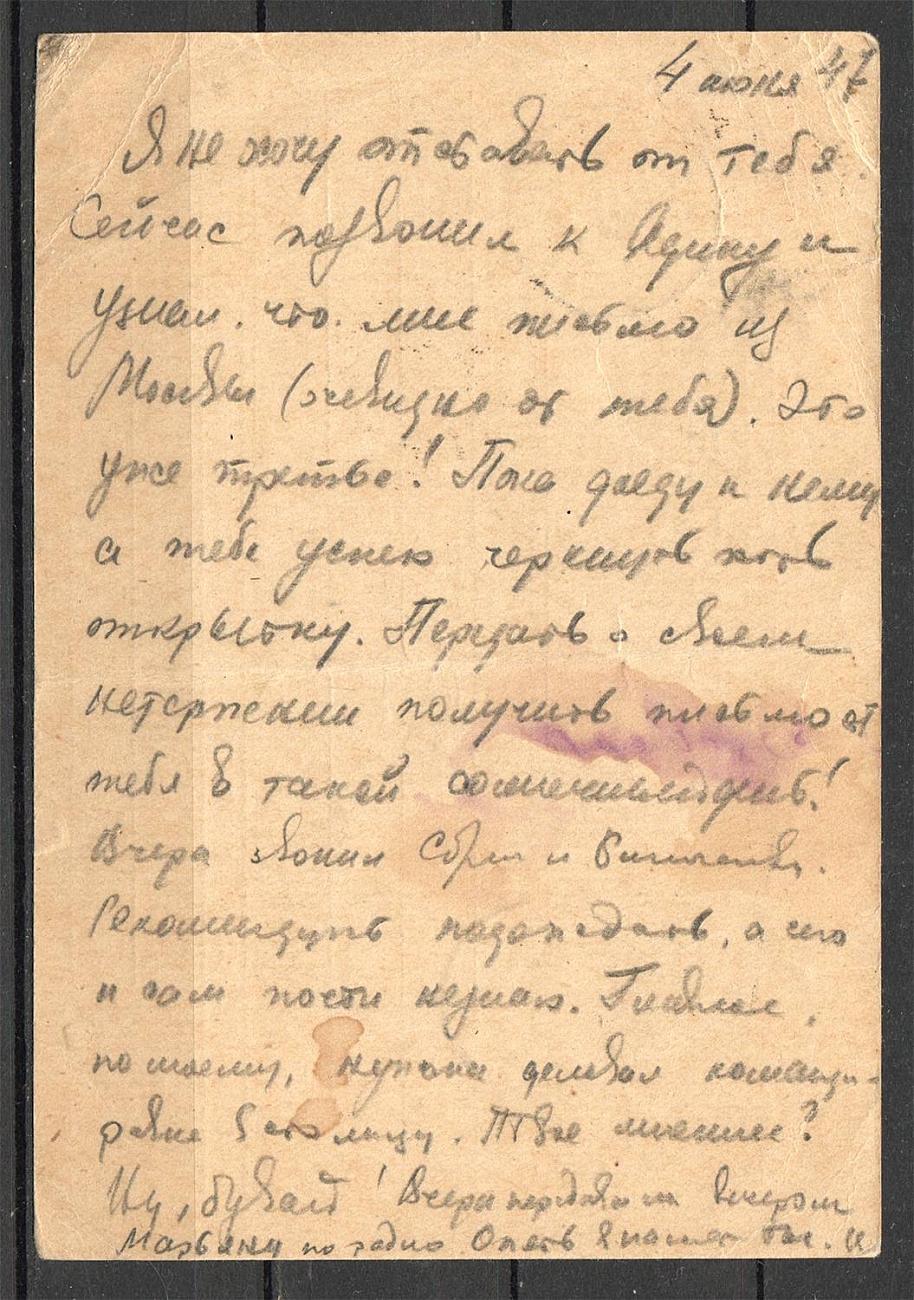 4 июня 47
Я не хочу отставать от тебя.
Сейчас позвонил к Адику и
узнал, что мне письмо из
Москвы (очевидно от тебя). Это
уже третье! Пока доеду к нему
а тебе успею черкнуть хоть
открытку. Передать о своем
нетерпении получить письмо от
тебя в такой солнечный день!
Вчера звонил и
Рекомендуют подождать, а чего
и сам почти не знаю. Главное,
по моему, нужна деловая команди-
ровка в столицу. Твое мнение?
Ну, бувай! Вчера передавали вечером
по радио Опять